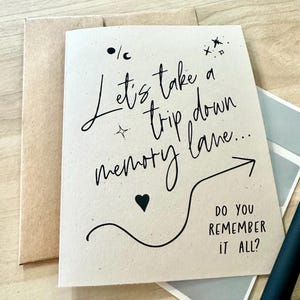 Let's take a
trip down
memory lane...
DO YOU
REMEMBER
iT ALL?